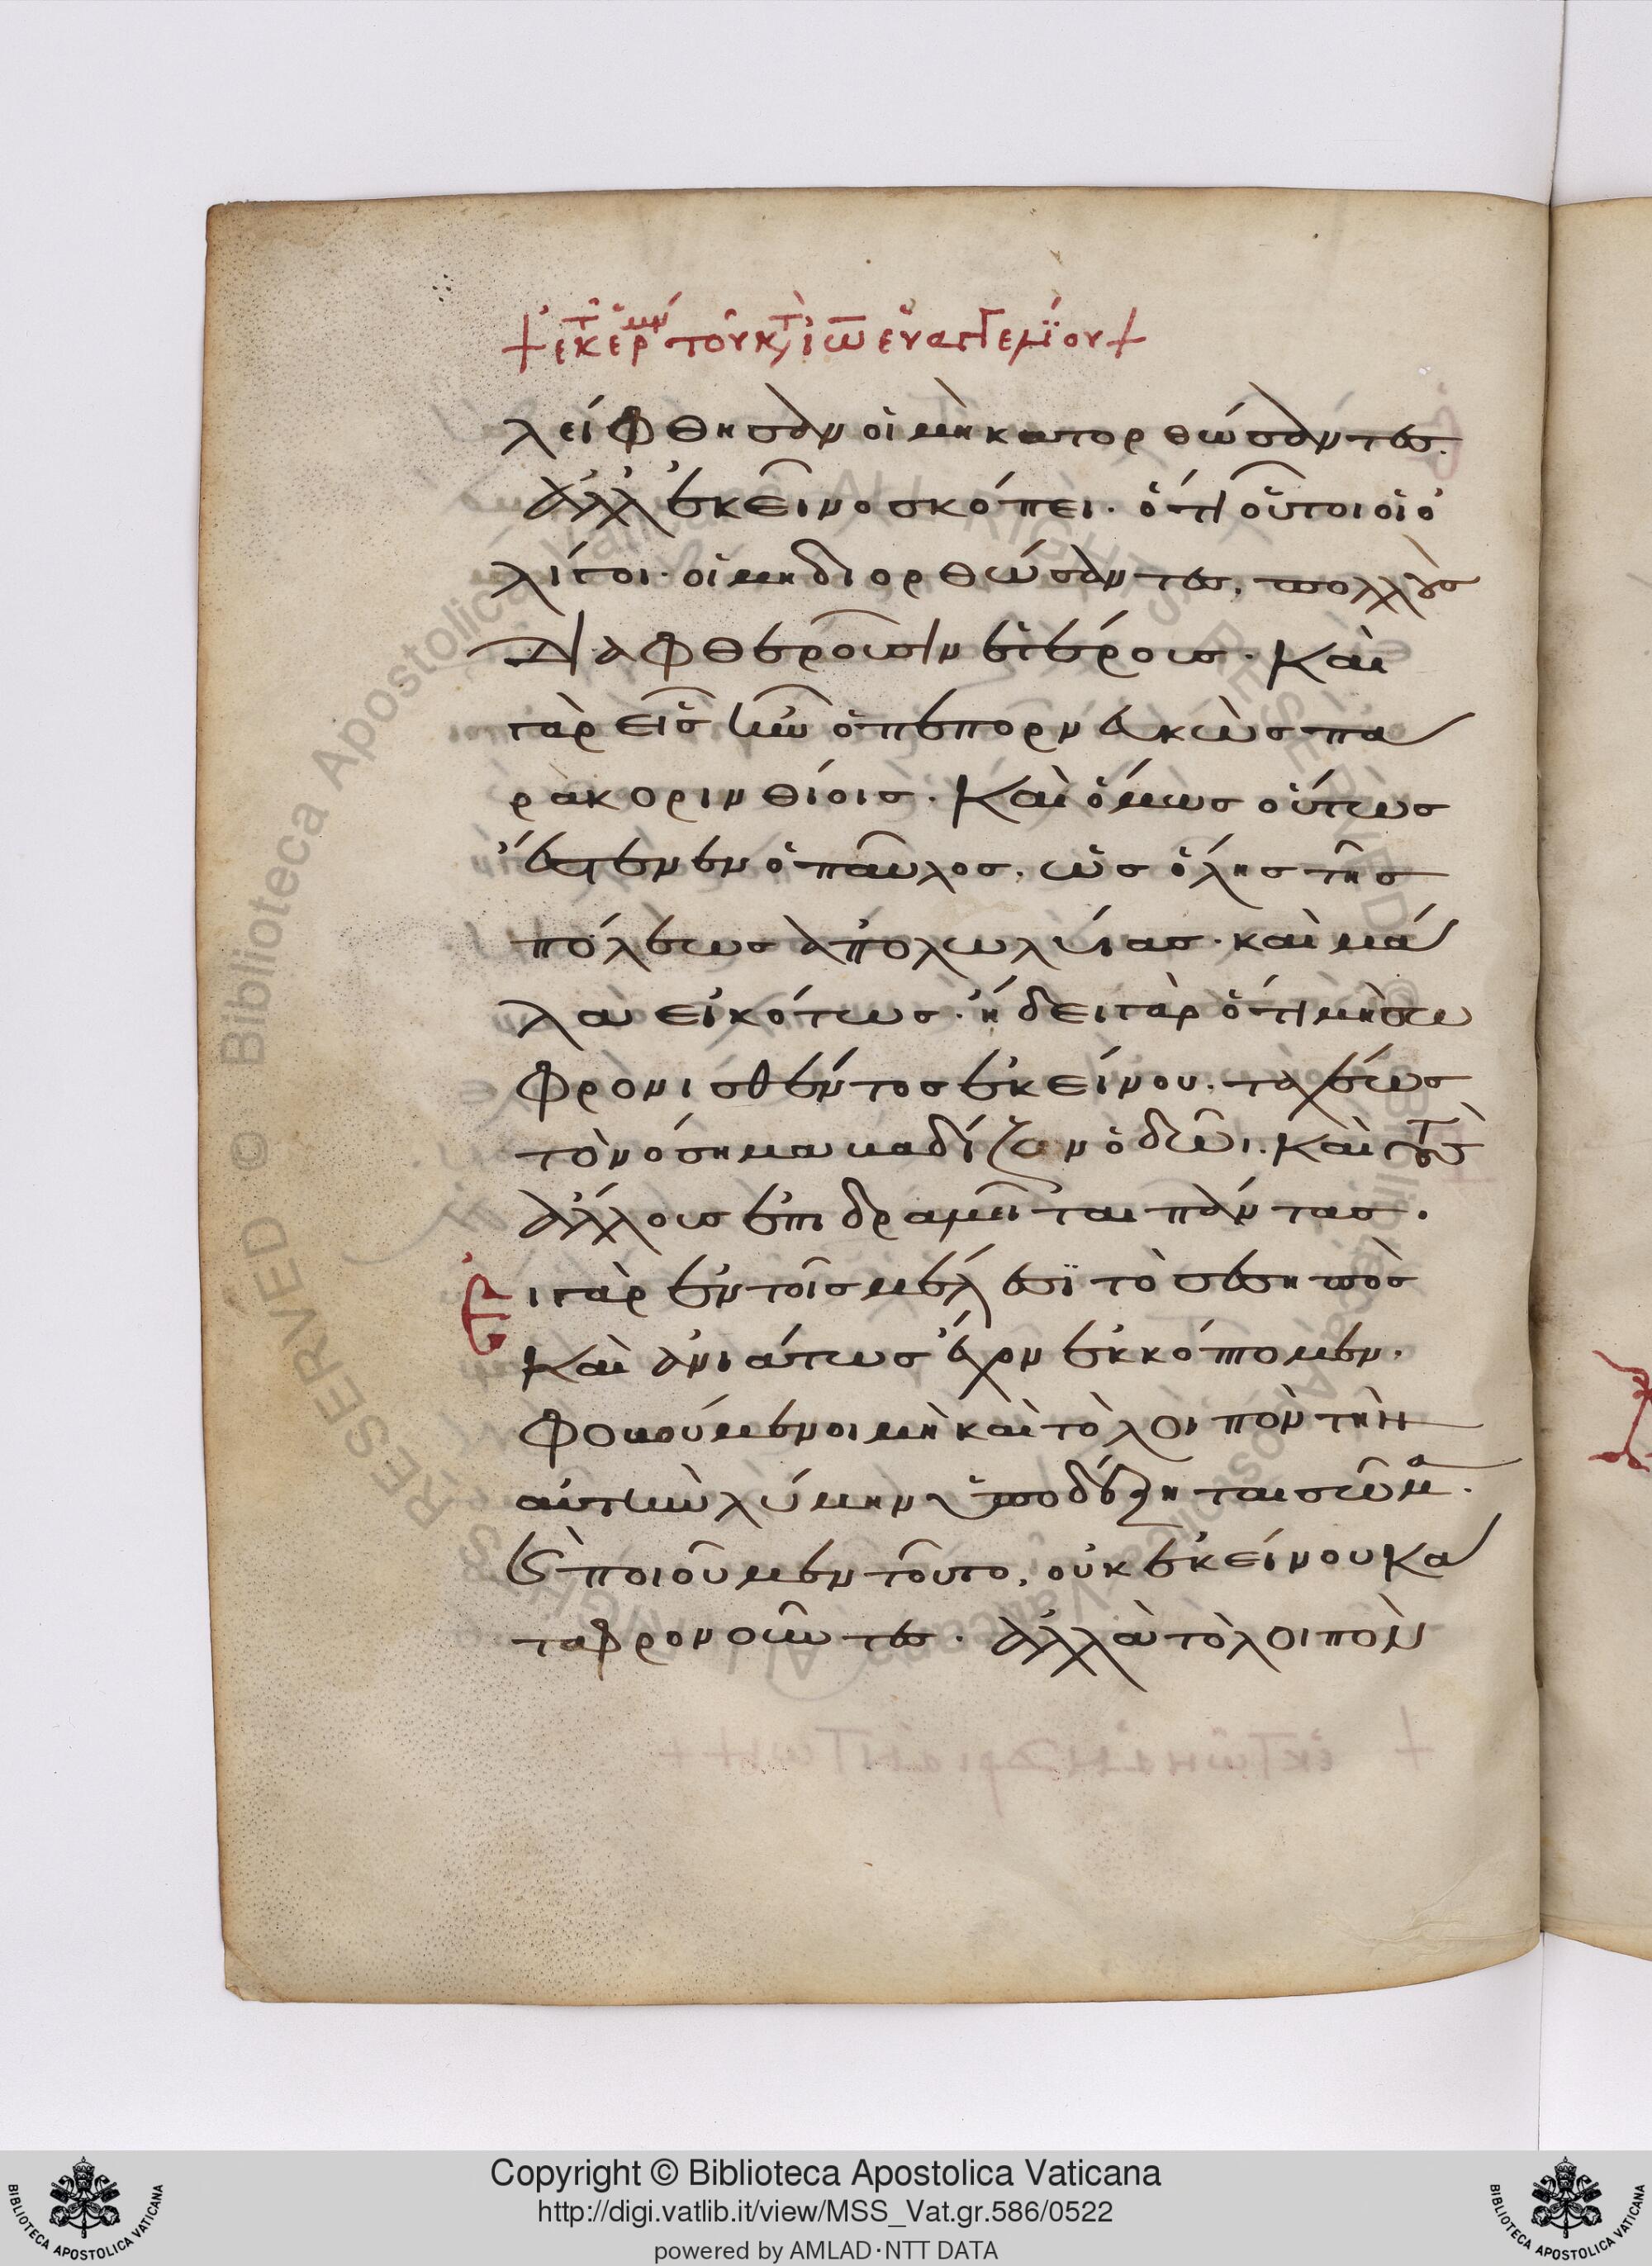 + ἐκ τ ἑρμ τοῦ κτ ἰω εὐαγγελίου +
λείφθησαν οἱ μὴ κατορθώσαντες.
ἀλλ' ἐκεῖνο σκόπει. ὅτι οὗτοι οἱ ὀ
λίγοι. οἱ μὴ διορθώσαντες, πολλοὺς
διαφθεροῦσιν ἑτέρους. Καὶ
γὰρ εἷς ἦν ὁ πεπορνευκὼς πα
ρὰ κορινθίοις. Καὶ ὅμως οὕτως
ἔστενεν ὁ παῦλος, ὡς ὅλης τῆς
πόλεως ἀπολωλυίας. καὶ μά
λα εἰκότως. ἤδει γὰρ ὅτι μὴ σω
φρονισθέντος ἐκείνου. ταχέως
τὸ νόσημα βαδίζον ὁδῶι. Καὶ τοὺς
ἄλλους ἐπιδραμεῖται πάντας.
Εἰ γὰρ ἐν τοῖς μέλεσϊ τὸ σεσηπὸς
Καὶ ἀνιάτως ἔχον ἐκκόπτομεν,
φοβούμενοι μὴ καὶ τὸ λοιπὸν τὴν
αὐτὴν λύμην ὑποδέξηται σῶμα.
Ὃ ποιοῦμεν τοῦτο, οὐκ ἐκείνου Κα
ταφρονοῦντες. ἀλλὰ τὸ λοιπὸν
Copyright © Biblioteca Apostolica Vaticana
http://digi.vatlib.it/view/MSS_Vat.gr.586/0522
powered by AMLAD·NTT DATA
BIBLIOTECA APOSTOLICA VATICANA
BIBLIOTECA APOSTOLICA VATICANA